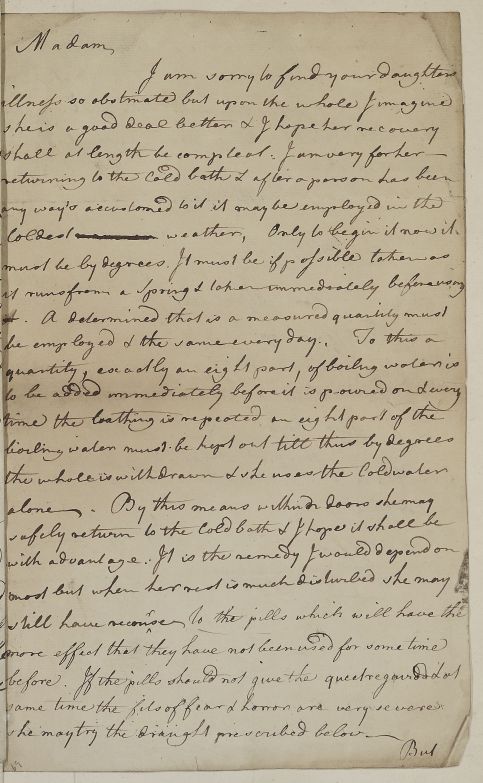 Madam,
I am sorry to find your daughters
illness so obstinate but upon the whole I imagine
she is a good deal better & I hope her recovery
shall at length be compleat. I am very for her
returning to the Cold bath & after a person has been
any way's accustomed to it it may be employed in the
Coldest weather, Only to begin it now it
must be by degrees. It must be if possible taken as
it runs from a Spring & taken immediately before using
it. A determined that is a measured quantity must
be employed & the same every day. To this a
quantity, exactly an eight part, of boiling water is
to be added immediately before it is poured on & every
time the bathing is repeated an eight part of the
boiling water must be kept out till thus by degrees
the whole is withdrawn & she uses the Cold water
alone. By this means within doors she may
safely return to the Cold bath & I hope it shall be
with advantage. It is the remedy I would depend on
most but when her rest is much disturbed she may
still have recourse to the pills which will have the
more effect that they have not been used for some time
before. If the pills should not give the quiet required & at
same time the fits of fear & horror are very severe
she may try the draught prescribed below
But